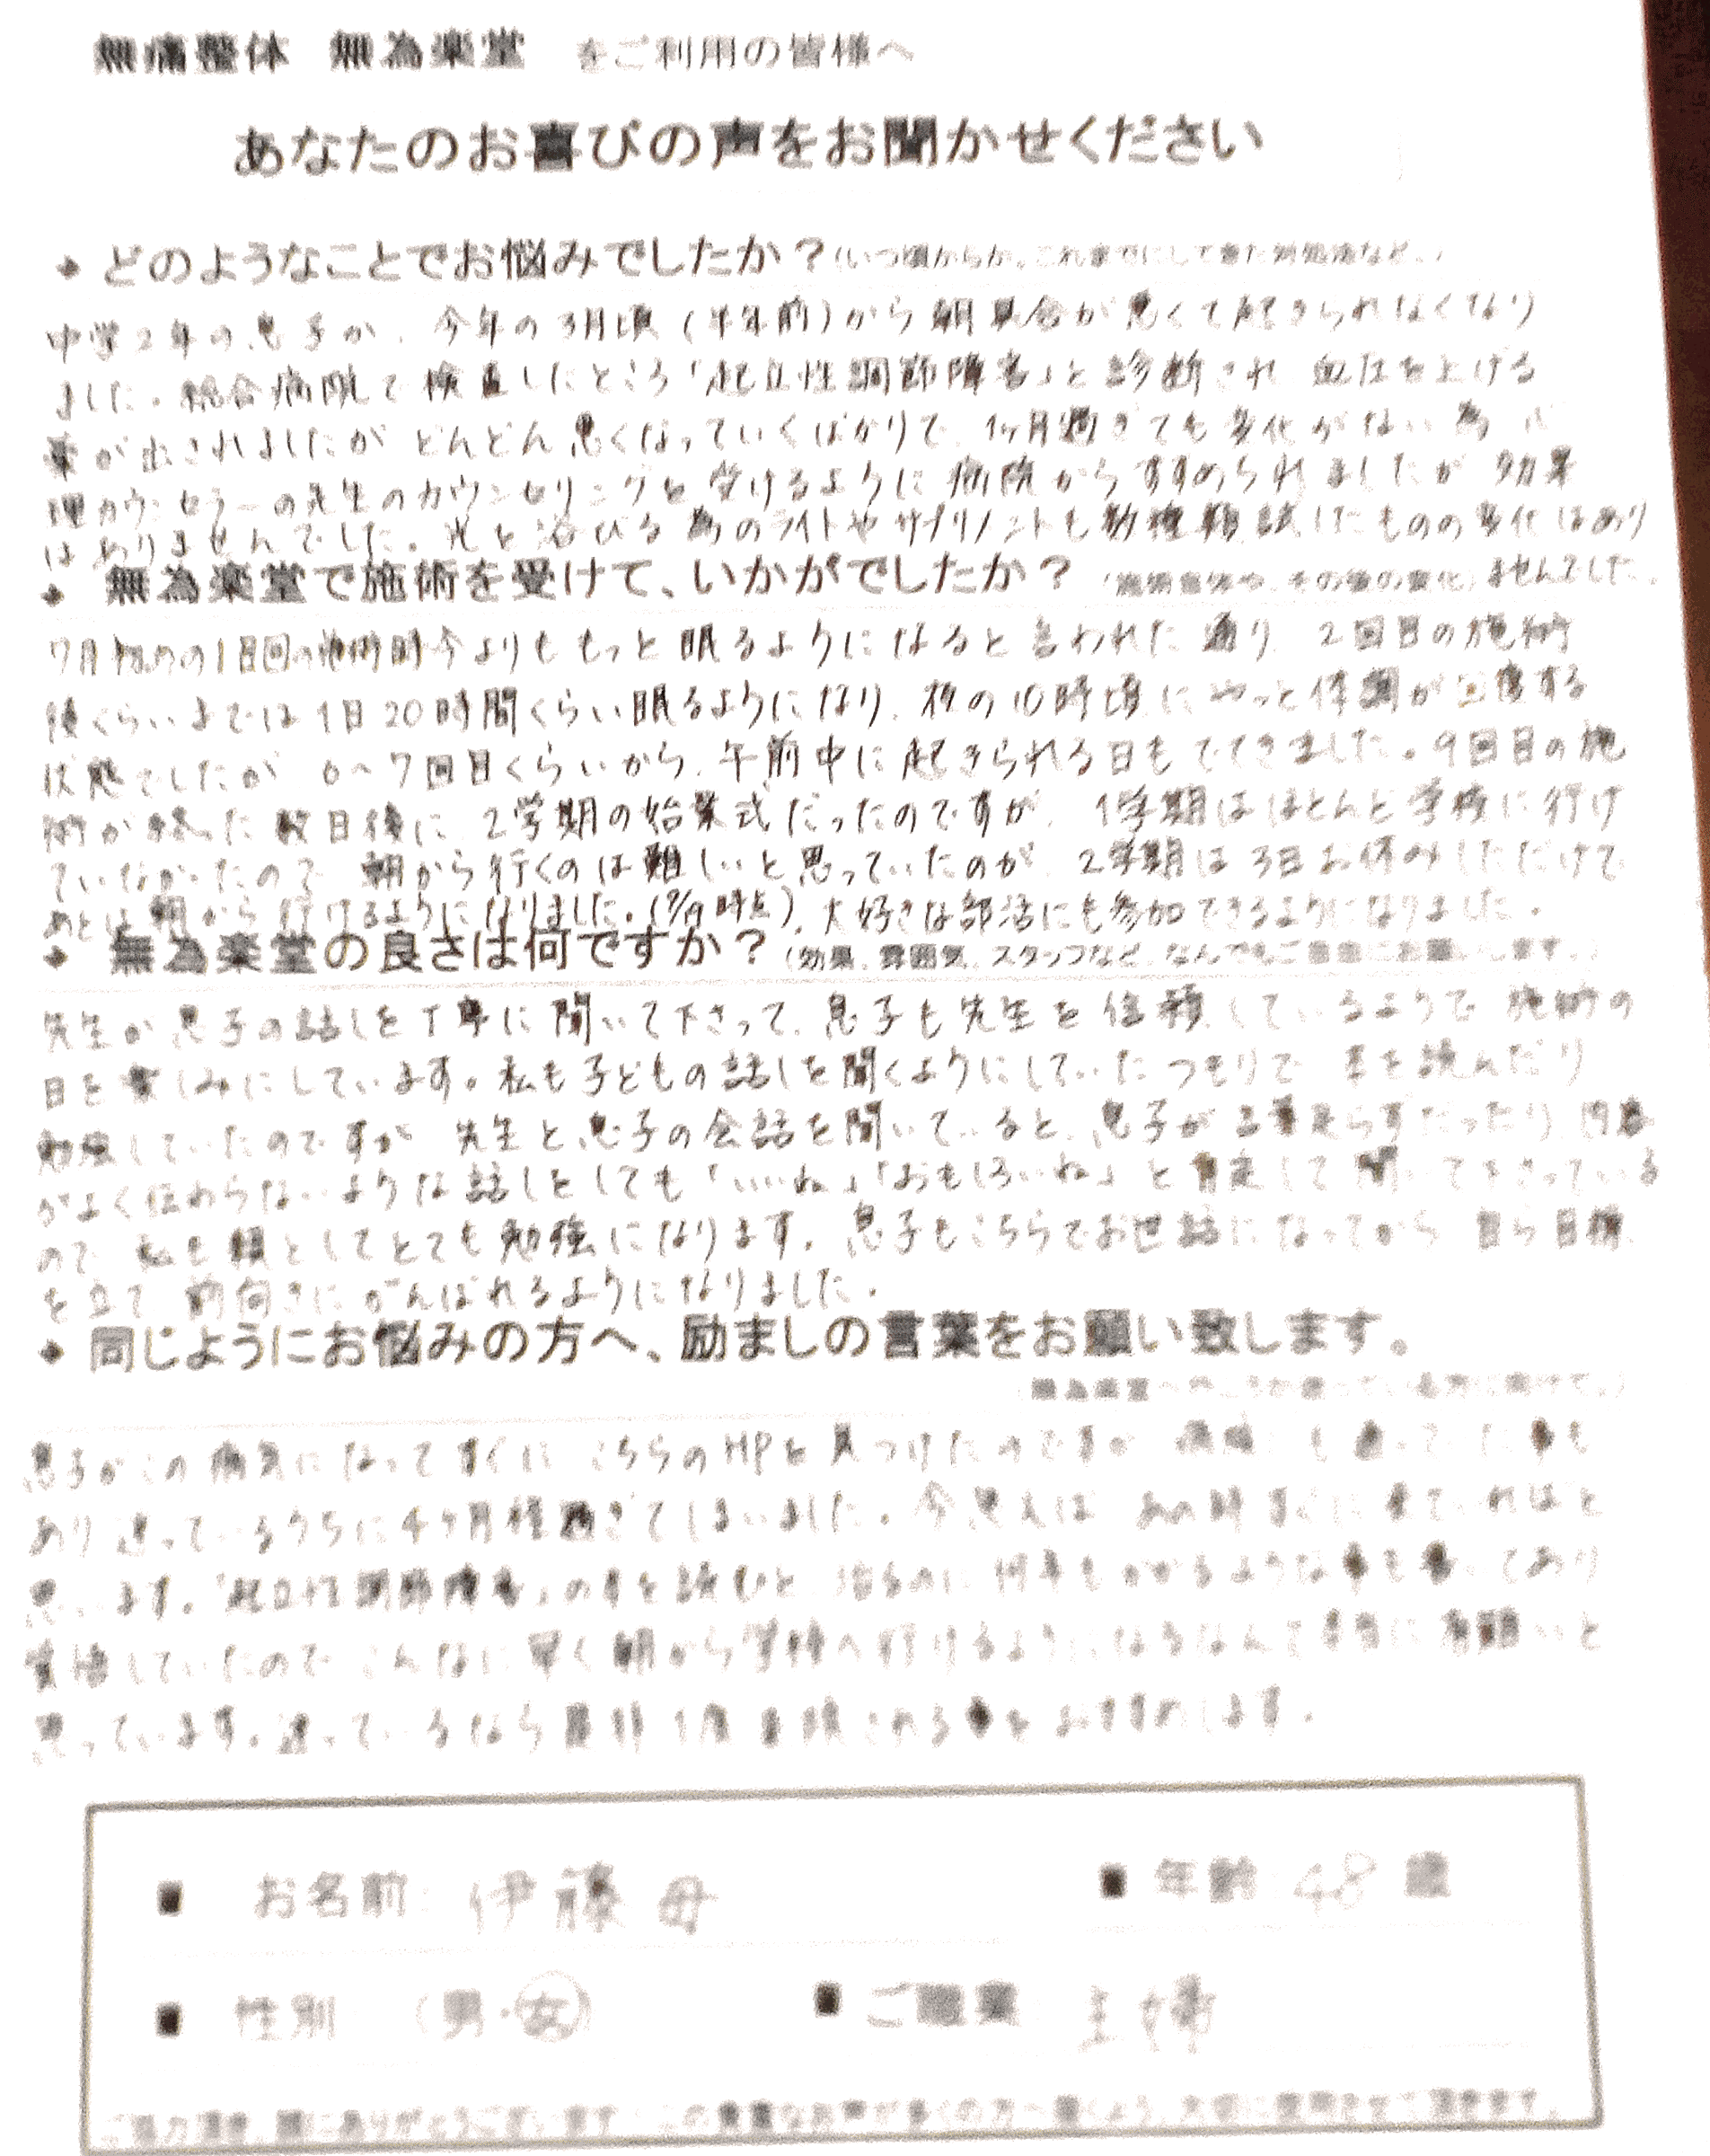 無痛整体 無為楽堂 をご利用の皆様へ
あなたのお喜びの声をお聞かせください
どのようなことでお悩みでしたか？(いつ頃からか、これまでにしてきた対処法など。)
中学2年の息子が、今年の3月頃(半年前)から朝具合が悪くて起きられなくなり
ました。総合病院で検査したところ「起立性調節障害」と診断され 血圧を上げる
薬が出されましたが どんどん悪くなっていくばかりで、1ヶ月過ぎても変化がない為 心
理カウンセラーの先生のカウンセリングを受けるように病院からすすめられましたが 効果
はありませんでした。光を浴びる為のライトやサプリメントも数種類試したものの変化はあり
無為楽堂で施術を受けて、いかがでしたか？(施術自体や、その後の変化) ませんでした。
7月初めの1日回の施術時今よりももっと眠るようになると言われた通り 2回目の施術
後くらいまでは1日20時間くらい眠るようになり、夜の10時頃にやっと体調が回復する
状態でしたが 6〜7回目くらいから、午前中に起きられる日もでてきました。9回目の施
術が終った数日後に、2学期の始業式だったのですが、1学期はほとんど学校に行け
ていなかったので 朝から行くのは難しいと思っていたのが 2学期は3日お休みしただけで
あとは朝から行けるようになりました。(9/9時点)、大好きな部活にも参加できるようになりました。
無為楽堂の良さは何ですか？(効果、雰囲気、スタッフなど、なんでもご自由にお願いします。)
先生が息子の話しを丁寧に聞いて下さって、息子も先生を信頼しているようで 施術の
日を楽しみにしています。私も子どもの話しを聞くようにしていたつもりで 本を読んだり
勉強していたのですが 先生と息子の会話を聞いていると、息子が言葉足らずだったり 内容
がよく伝わらないような話しをしても「いいね」「おもしろいね」と肯定して聞いて下さっている
ので 私も親としてとても勉強になります。息子もこちらでお世話になってから 自ら目標
を立て 前向きにがんばれるようになりました。
同じようにお悩みの方へ、励ましの言葉をお願い致します。
息子がこの病気になってすぐに こちらのHPを見つけたのですが
あり 迷っているうちに4ヶ月程過ぎてしまいました。今思えば あの時すぐに来ていればと
思います。「起立性調節障害」の本を読むと 治るのに何年もかかるような事も書いてあり
覚悟していたので こんなに早く朝から学校へ行けるようになるなんて本当に有難いと
思っています。迷っているなら是非1度 される事をおすすめします。
お名前 伊藤 母
年齢 48 歳
性別 (男・女)
ご職業 主婦